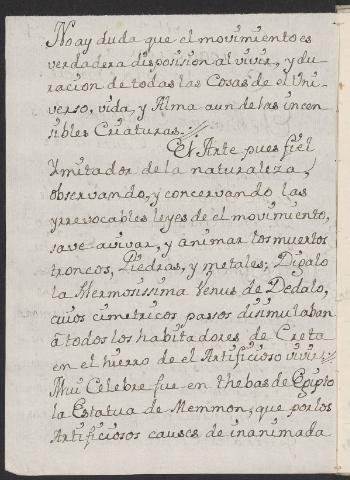 No ay duda que el movimiento es
verdadera disposision al vivir, y du
racion de todas las Cosas de el Uni
verso, vida, y Alma aun de las incen
sibles Criaturas.
El Arte pues fiel
Ymitador de la naturaleza,
observando, y concervando las
yrrevocables leyes de el movimiento,
save avivar, y animar los muertos
troncos, Piedras, y metales; Digalo
la Hermosissima Venus de Dedalo,
cuios cimetricos pasos disimulaban
â todos los habitadores de Creta
en el hierro de el Artificioso vivir.
Mui Celebre fue en thebas de Egipto
la Estatua de Memmon, que por los
Artificiosos causes de inanimada